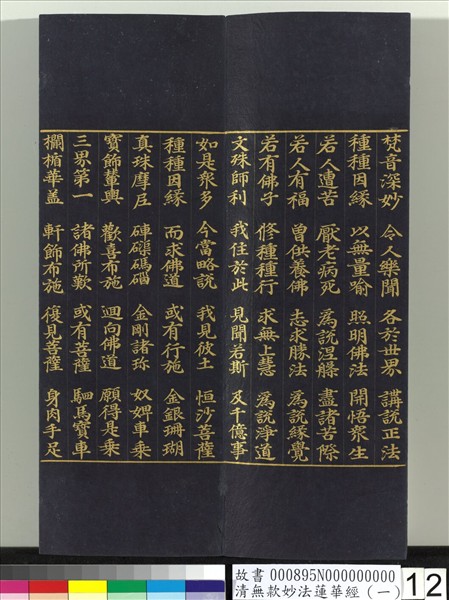 梵音深妙　令人樂聞　各於世界　講說正法
種種因緣　以無量喻　照明佛法　開悟眾生
若人遭苦　厭老病死　為說涅槃　盡諸苦際
若人有福　曾供養佛　志求勝法　為說緣覺
若有佛子　修種種行　求無上慧　為說淨道
文殊師利　我住於此　見聞若斯　及千億事
如是眾多　今當略說　我見彼土　恒沙菩薩
種種因緣　而求佛道　或有行施　金銀珊瑚
真珠摩尼　硨磲碼碯　金剛諸珍　奴婢車乘
寶飾輦輿　歡喜布施　迴向佛道　願得是乘
三界第一　諸佛所歎　或有菩薩　駟馬寶車
欄楯華蓋　軒飾布施　復見菩薩　身肉手足
故書 000895N000000000
清無款妙法蓮華經(一)
12